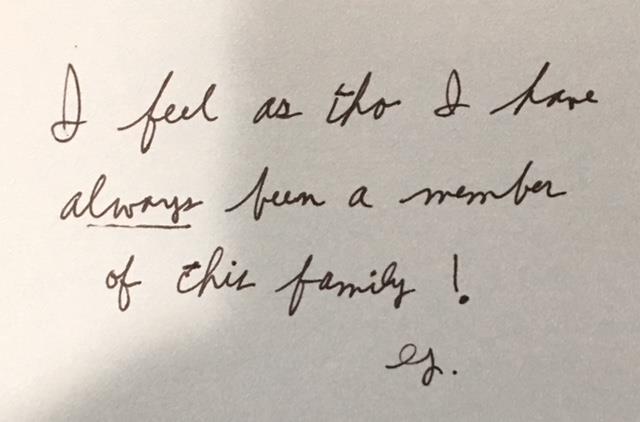 I feel as tho I have
always been a member
of this family!
es.